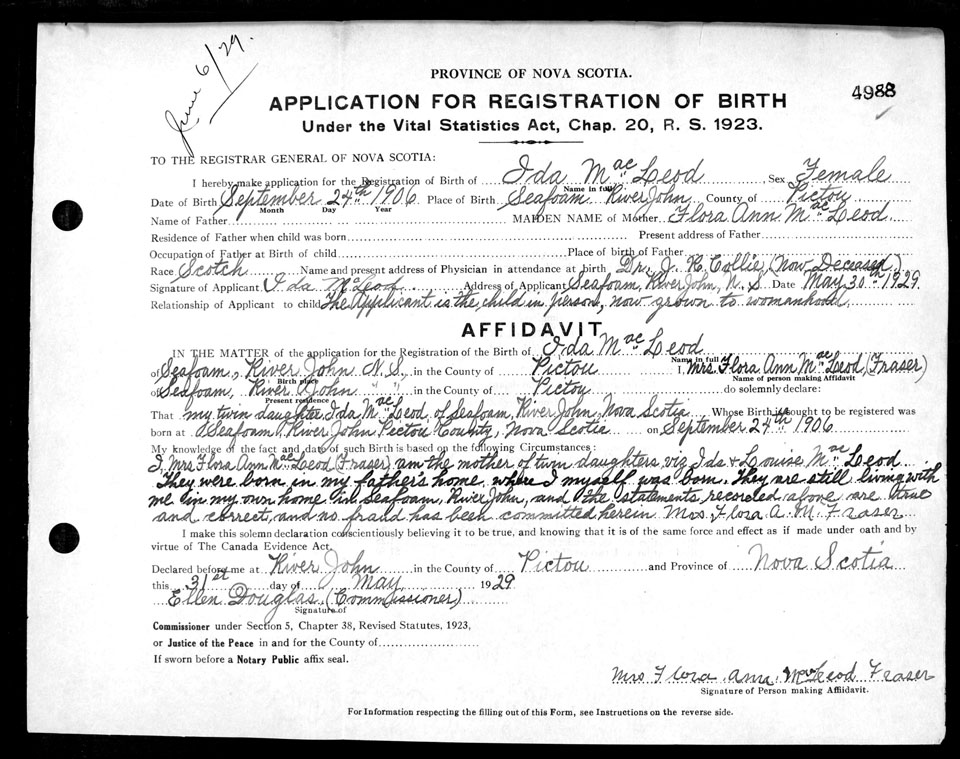 June 6/29.
PROVINCE OF NOVA SCOTIA.
4988
APPLICATION FOR REGISTRATION OF BIRTH
Under the Vital Statistics Act, Chap. 20, R. S. 1923.
TO THE REGISTRAR GENERAL OF NOVA SCOTIA:
I hereby make application for the Registration of Birth of Ida MacLeod Sex Female
Name in full
Date of Birth September 24th 1906 Place of Birth Seafoam River John County of Pictou
Month Day Year
Name of Father MAIDEN NAME of Mother Flora Ann MacLeod
Residence of Father when child was born Present address of Father
Occupation of Father at Birth of child Place of birth of Father
Race Scotch Name and present address of Physician in attendance at birth Dr. J. K. Collie, (Now Deceased)
Signature of Applicant Ida McLeod Address of Applicant Seafoam, River John, N. S. Date May 30th 1929
Relationship of Applicant to child The Applicant is the child in person, now grown to womanhood.
AFFIDAVIT
IN THE MATTER of the application for the Registration of the Birth of Ida MacLeod
Name in full
of Seafoam, River John N.S. in the County of Pictou I, Mrs Flora Ann MacLeod (Fraser)
Birth place Name of person making Affidavit
of Seafoam, River John " " in the County of Pictou do solemnly declare:
Present residence
That my twin daughter Ida MacLeod of Seafoam, River John, Nova Scotia Whose Birth is sought to be registered was
born at Seafoam, River John Pictou County, Nova Scotia on September 24th 1906
My knowledge of the fact and date of such Birth is based on the following Circumstances:
I, Mrs Flora Ann MacLeod (Fraser) am the mother of twin daughters viz Ida & Louise MacLeod
They were born in my father's home, where I myself was born. They are still living with
me in my own home in Seafoam, River John, and the statements recorded above are true
and correct, and no fraud has been committed herein Mrs Flora A. M. Fraser
I make this solemn declaration conscientiously believing it to be true, and knowing that it is of the same force and effect as if made under oath and by
virtue of The Canada Evidence Act.
Declared before me at River John in the County of Pictou and Province of Nova Scotia
this 31st day of May 1929
Ellen Douglas, (Commissioner)
Signature of
Commissioner under Section 5, Chapter 38, Revised Statutes, 1923,
or Justice of the Peace in and for the County of
If sworn before a Notary Public affix seal.
Mrs Flora Ann MacLeod Fraser
Signature of Person making Affidavit.
For Information respecting the filling out of this Form, see Instructions on the reverse side.